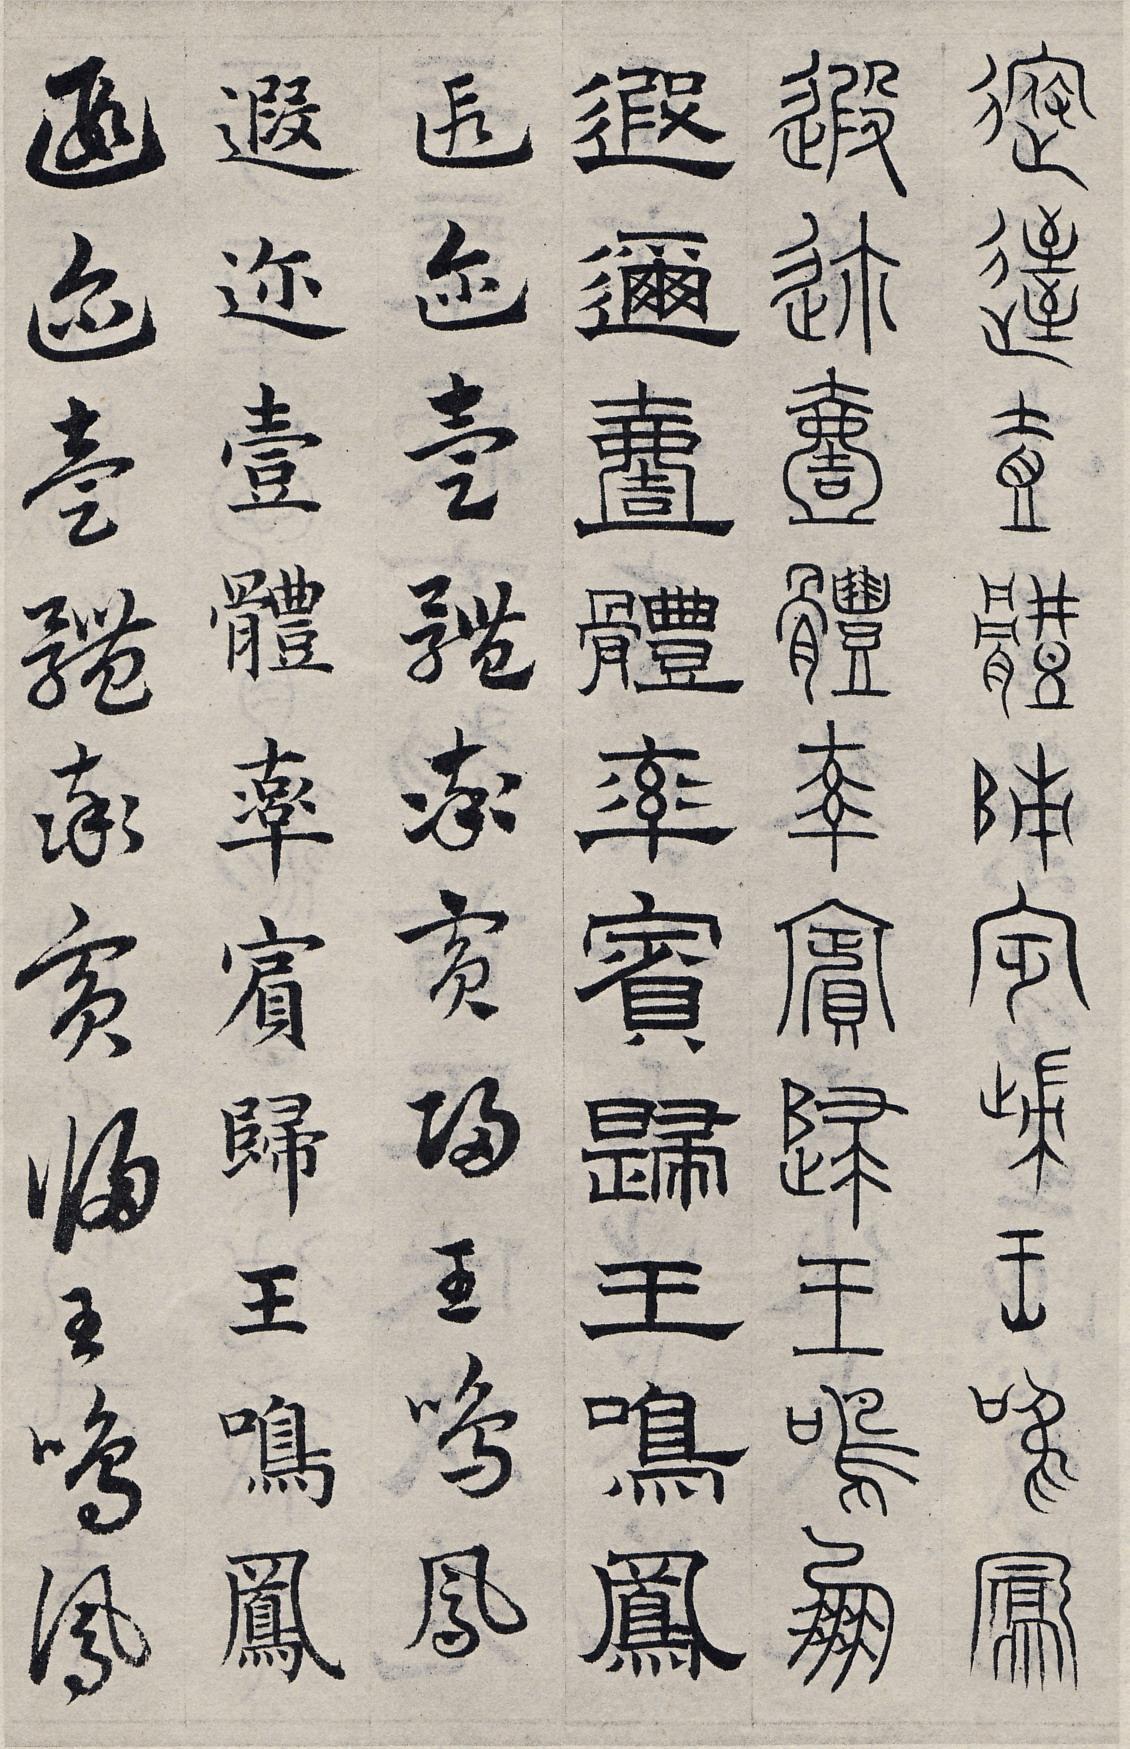 遐邇壹體率賓歸王鳴鳳
遐邇壹體率賓歸王鳴鳳
遐邇壹體率賓歸王鳴鳳
遐迩壹體率賓歸王鳴鳳
遐迩壹體率賓歸王鳴鳳
遐迩壹體率賓歸王鳴鳳